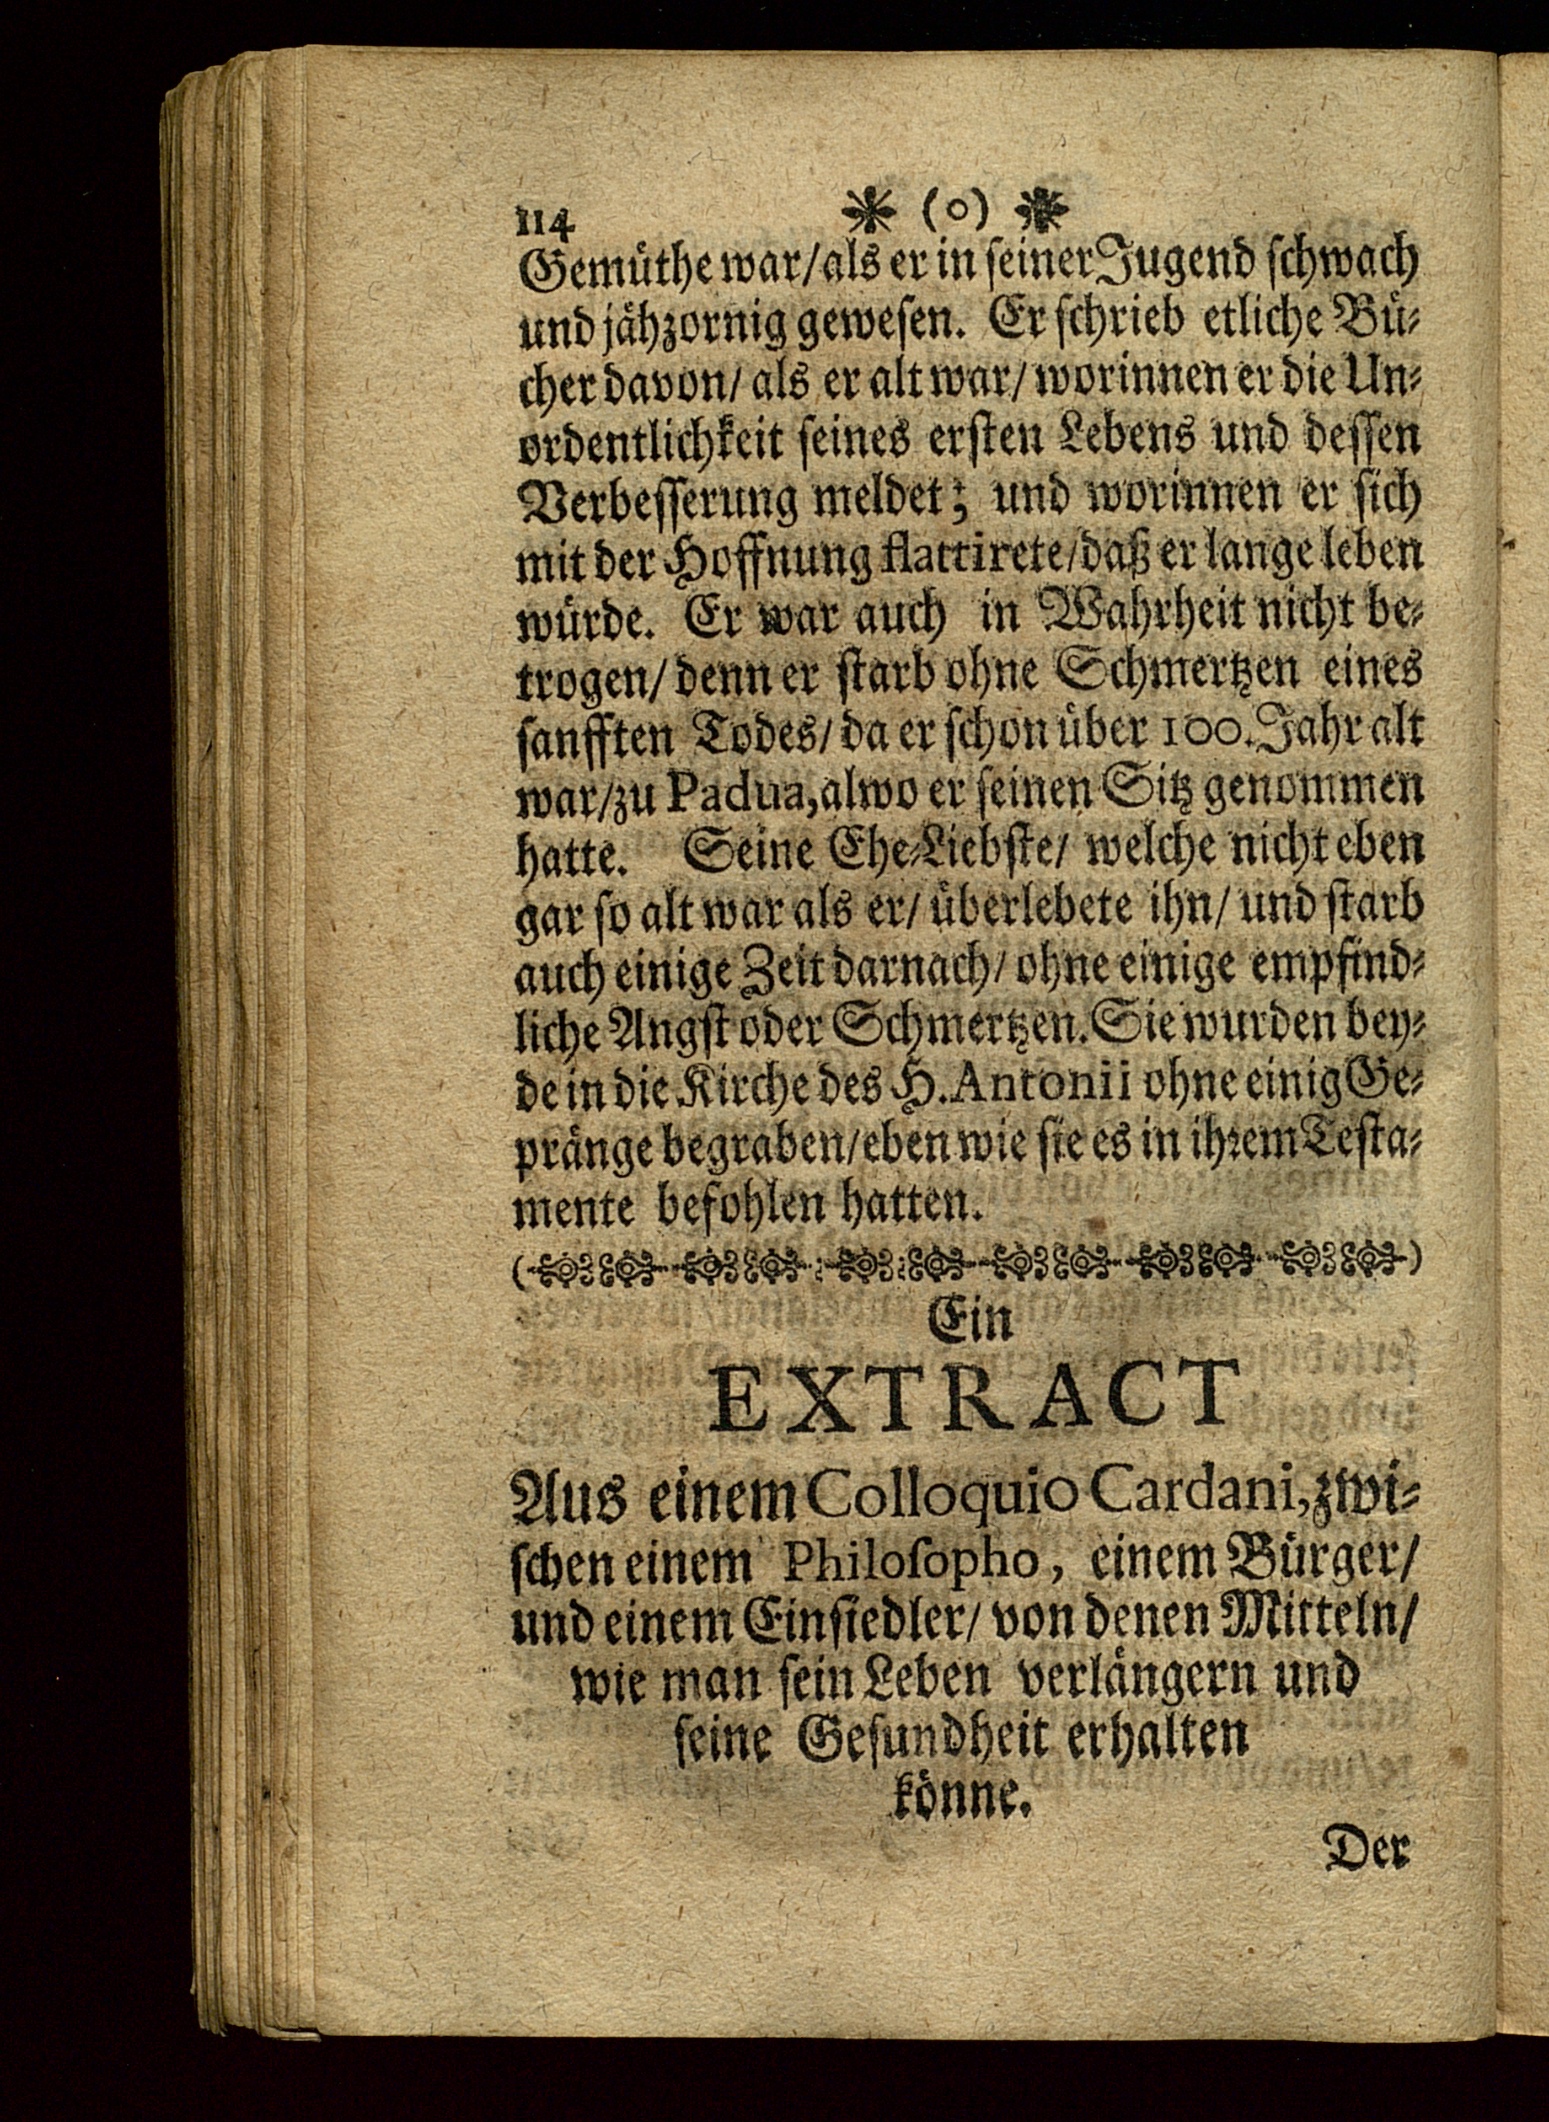 114 * (o) *
Gemüthe war/als er in ſeiner Jugend ſchwach
und jähzornig geweſen. Er ſchrieb etliche Bü⸗
cher davon/ als er alt war/ worinnen er die Un⸗
ordentlichkeit ſeines erſten Lebens und deſſen
Verbeſſerung meldet; und worinnen er ſich
mit der Hoffnung flattirete/daß er lange leben
würde. Er war auch in Wahrheit nicht be⸗
trogen/ denn er ſtarb ohne Schmertzen eines
ſanfften Todes/ da er ſchon über 100. Jahr alt
war/zu Padua, alwo er ſeinen Sitz genommen
hatte. Seine Ehe⸗Liebſte/ welche nicht eben
gar ſo alt war als er/ überlebete ihn/ und ſtarb
auch einige Zeit darnach/ ohne einige empfind⸗
liche Angſt oder Schmertzen. Sie wurden bey⸗
de in die Kirche des H. Antonii ohne einig Ge⸗
pränge begraben/eben wie ſie es in ihrem Teſta⸗
mente befohlen hatten.
Ein
EXTRACT
Aus einem Colloquio Cardani, zwi⸗
ſchen einem Philoſopho, einem Bürger/
und einem Einſiedler/ von denen Mitteln/
wie man ſein Leben verlängern und
ſeine Geſundheit erhalten
könne.
Der